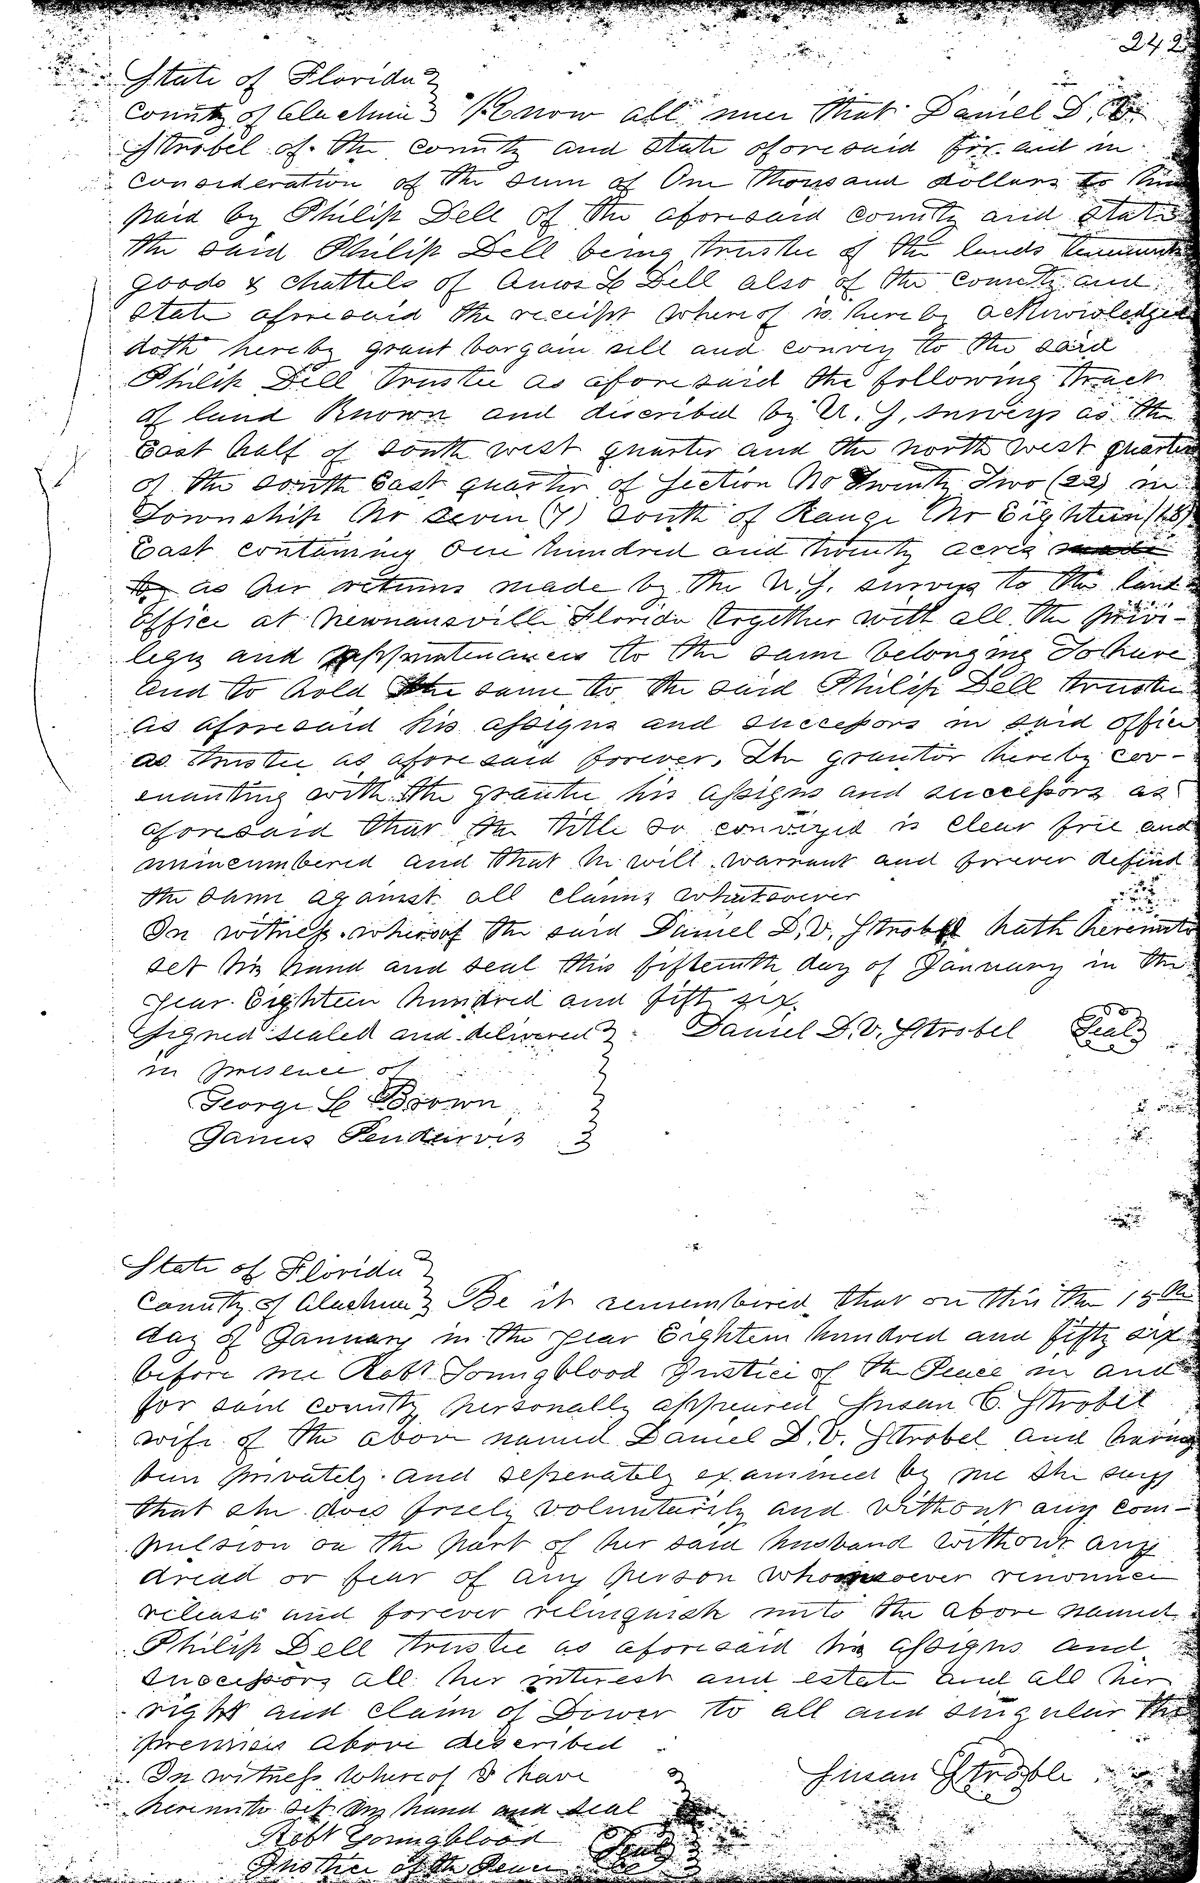 242
State of Florida
County of Alachua Know all men that Daniel D. V.
Strobel of the county and state aforesaid for and in
consideration of the sum of One thousand dollars to him
paid by Philip Dell of the aforesaid county and state
the said Philip Dell being trustee of the lands tenements
goods & chattels of Amos L Dell also of the county and
state aforesaid the receipt whereof is hereby acknowledged
doth hereby grant bargain sell and convey to the said
Philip Dell trustee as aforesaid the following tract
of land Known and discribed by U. S. surveys as the
East half of south west quarter and the north west quarter
of the south East quarter of Section No Twenty Two (22) in
Township No Seven (7) South of Range No Eighteen (18)
East containing One hundred and twenty acres made
by as per returns made by the U. S. surveys to the land
office at Newnansville Florida together with all the privi-
leges and appurtenances to the same belonging To have
and to hold the same to the said Philip Dell trustee
as aforesaid his assigns and successors in said office
as trustee as aforesaid forever. The grantor hereby cov-
enanting with the grantee his assigns and successors as
aforesaid that the title so conveyed is clear free and
unincumbered and that he will warrant and forever defend
the same against all claims whatsoever
In witness whereof the said Daniel D. V. Strobel hath hereunto
set his hand and seal this fifteenth day of January in the
year Eighteen hundred and fifty six.
Signed sealed and delivered Daniel D. V. Strobel Seal
in presence of
George L Brown
James Pendarvis
State of Florida
County of Alachua Be it remembered that on this the 15th
day of January in the year Eighteen hundred and fifty six
before me Robt Youngblood Justice of the Peace in and
for said county personally appeared Susan C. Strobel
wife of the above named Daniel D. V. Strobel and having
been privately and seperately examined by me she says
that she does freely voluntarily and without any com-
pulsion on the part of her said husband without any
dread or fear of any person whomsoever renounce
release and forever relinquish unto the above named
Philip Dell trustee as aforesaid his assigns and
successors all her interest and estate and all her
right and claim of Dower to all and singular the
premises above described
In witness whereof I have Susan C Stroble
hereunto set my hand and seal
Robt Youngblood Seal
Justice of the Peace